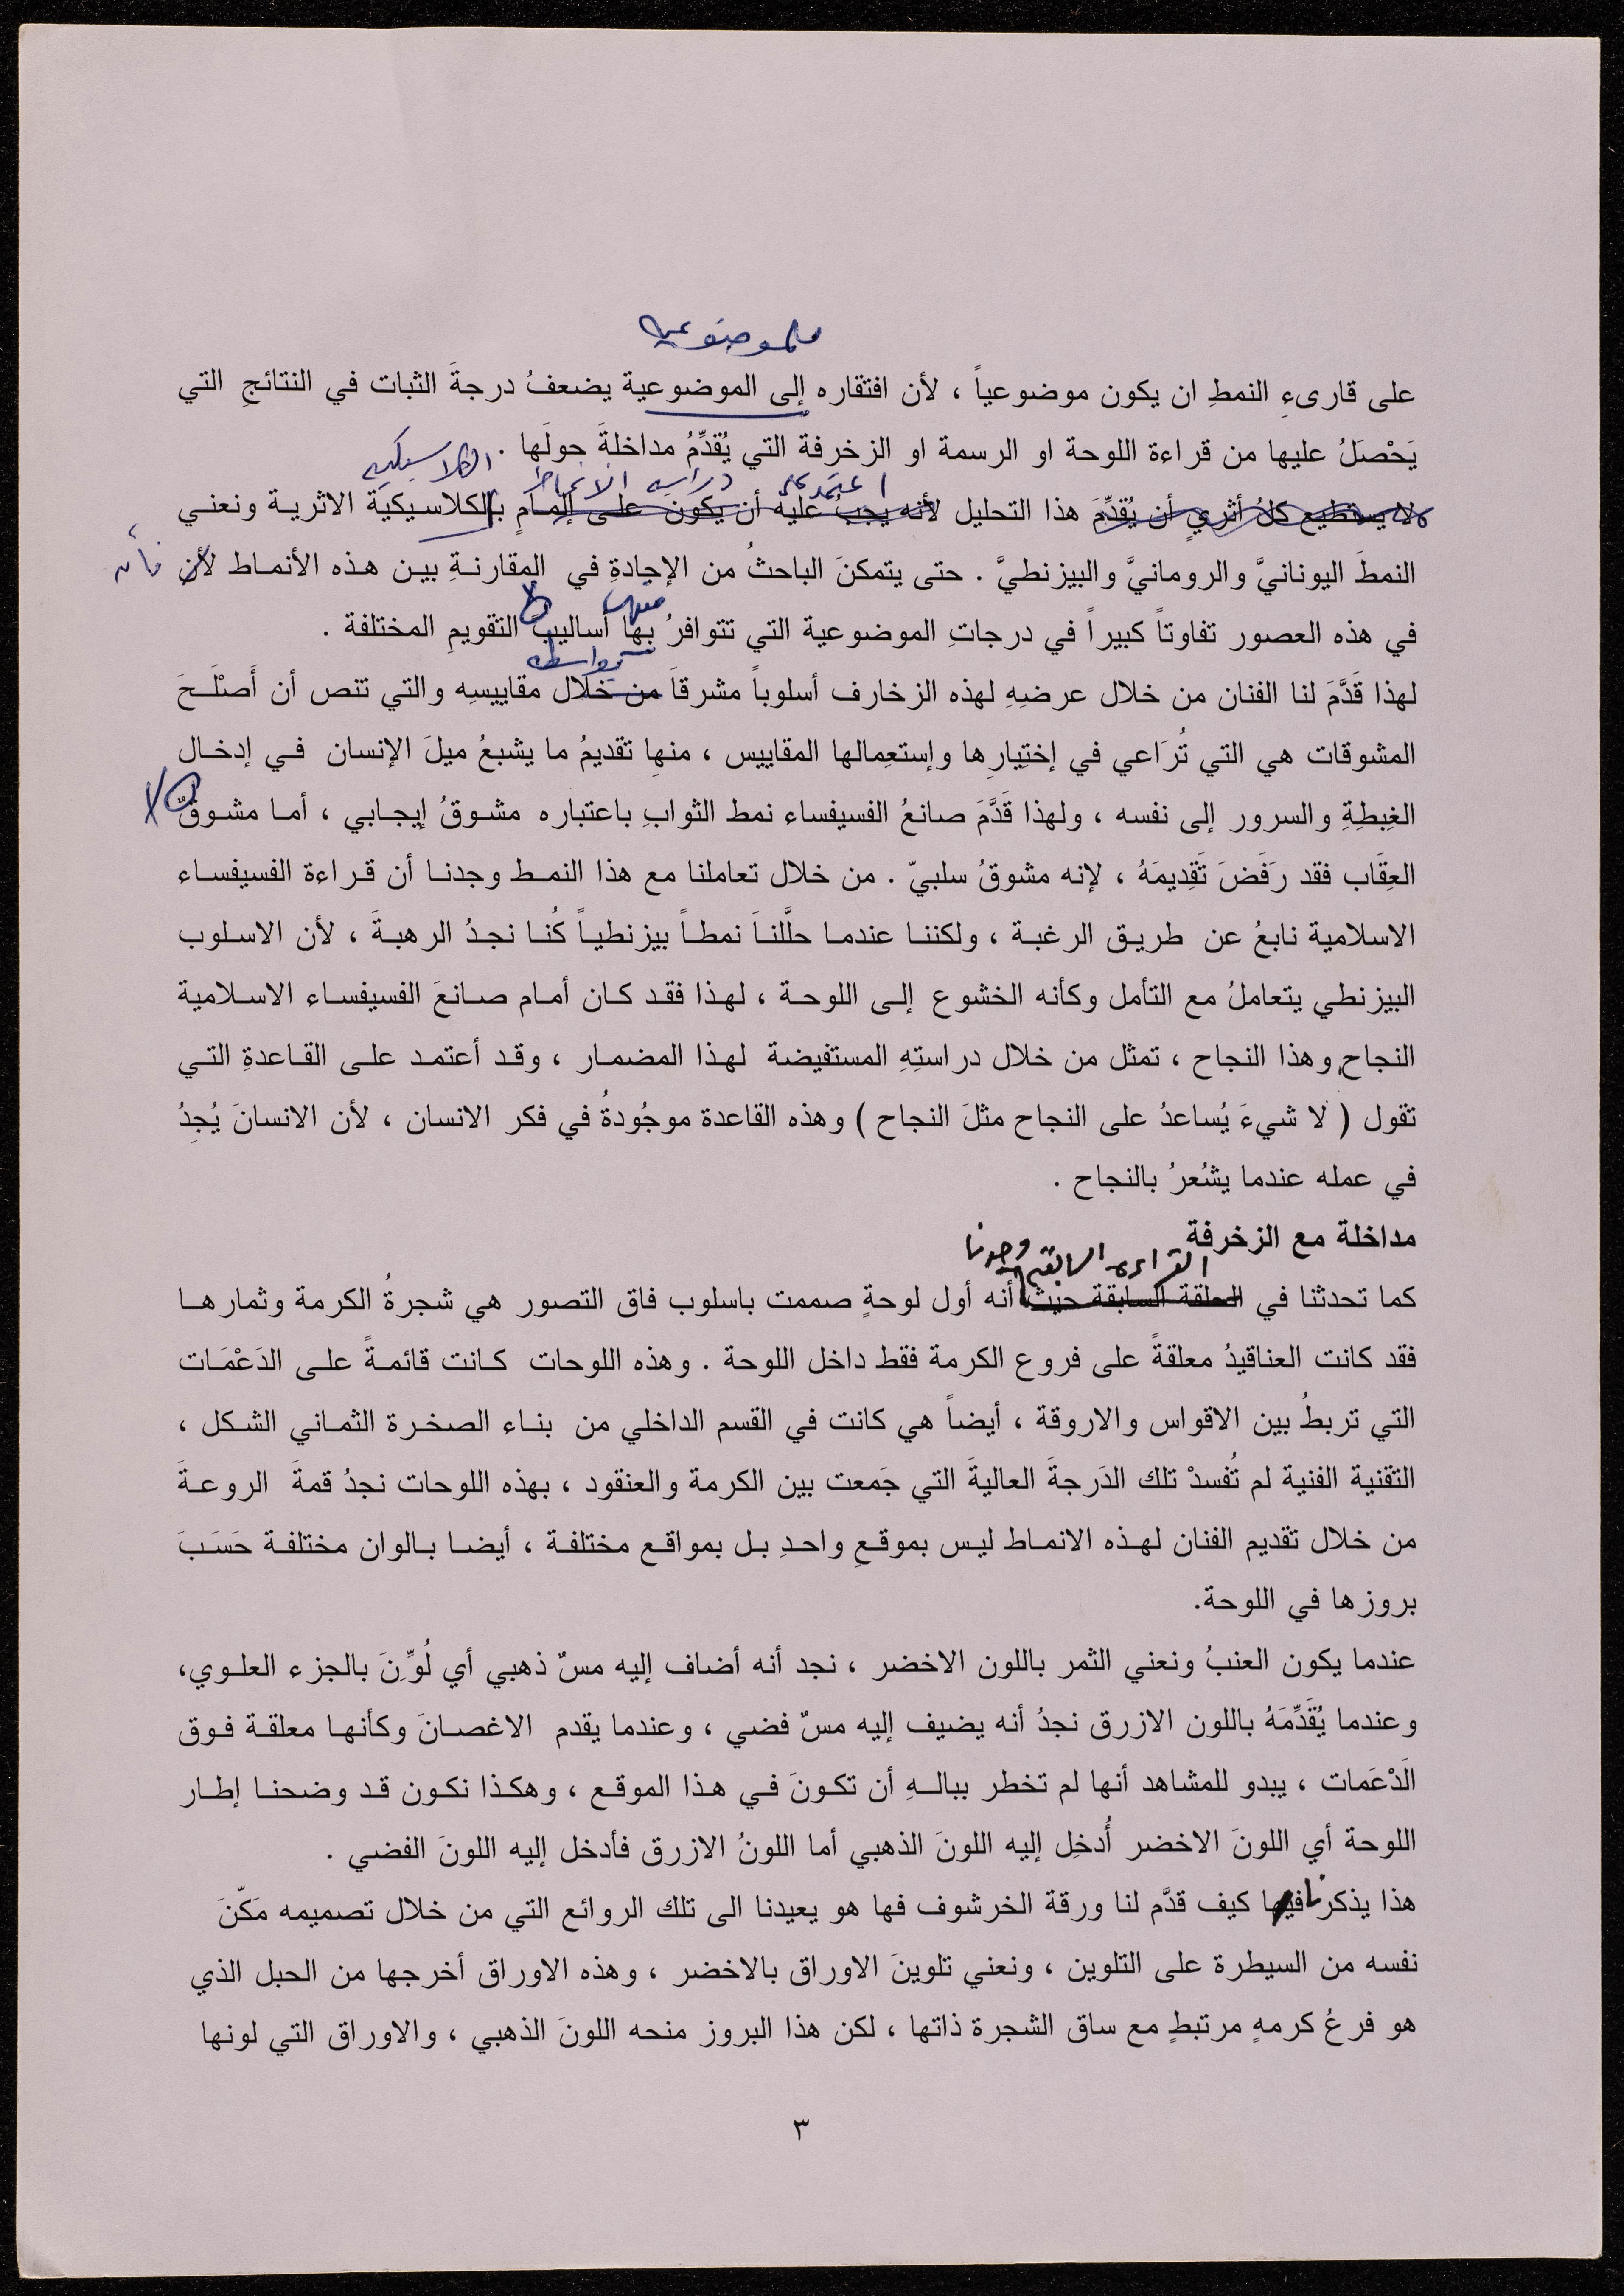 للموضوعية
على قارىءِ النمطِ ان يكون موضوعياً ، لأن افتقاره إلى الموضوعية يضعفُ درجةَ الثبات في النتائجِ التي
يَحْصَلُ عليها من قراءة اللوحة او الرسمة او الزخرفة التي يُقدِّمُ مداخلةَ حولَها .
اعتمد على دراسة الانماط الكلاسيكية
لا يستطيع كلُ أثريٍ أن يُقدِّمَ هذا التحليل لأنه يجبُ عليه أن يكون على إلمامٍ بالكلاسيكية الاثرية ونعني
النمطَ اليونانيَّ والرومانيَّ والبيزنطيَّ . حتى يتمكنَ الباحثُ من الإجادةِ في المقارنةِ بين هذه الأنماط لأن فأن
منها
في هذه العصور تفاوتاً كبيراً في درجاتِ الموضوعية التي تتوافرُ بها أساليبَ التقويمِ المختلفة .
بواسطة
لهذا قَدَّمَ لنا الفنان من خلال عرضِهِ لهذه الزخارف أسلوباً مشرقاً من خلال مقاييسِه والتي تنص أن أَصْلَحَ
المشوقات هي التي تُرَاعي في إختِيارِها وإستعِمالها المقاييس ، منهِا تقديمُ ما يشبعُ ميلَ الإنسان في إدخال
الغِبطِةِ والسرور إلى نفسه ، ولهذا قَدَّمَ صانعُ الفسيفساء نمط الثوابِ باعتباره مشوقُ إيجابي ، أما مشوقٌ
العِقَاب فقد رَفَضَ تَقِديمَهُ ، لإنه مشوقُ سلبيّ . من خلال تعاملنا مع هذا النمط وجدنا أن قراءة الفسيفساء
الاسلامية نابعُ عن طريق الرغبة ، ولكننا عندما حلَّلناَ نمطاً بيزنطياً كُنا نجدُ الرهبةَ ، لأن الاسلوب
البيزنطي يتعاملُ مع التأمل وكأنه الخشوع إلى اللوحة ، لهذا فقد كان أمام صانعَ الفسيفساء الاسلامية
النجاح وهذا النجاح ، تمثل من خلال دراستِهِ المستفيضة لهذا المضمار ، وقد أعتمد على القاعدةِ التي
تقول ( لا شيءَ يُساعدُ على النجاح مثلَ النجاح ) وهذه القاعدة موجُودةُ في فكر الانسان ، لأن الانسانَ يُجِدُ
في عمله عندما يشعُرُ بالنجاح .
مداخلة مع الزخرفة
القراءة السابقة وجدنا
كما تحدثنا في الحلقة السابقة حيث أنه أول لوحةٍ صممت باسلوب فاق التصور هي شجرةُ الكرمة وثمارها
فقد كانت العناقيدُ معلقةً على فروع الكرمة فقط داخل اللوحة . وهذه اللوحات كانت قائمةً على الدَعْمَات
التي تربطُ بين الاقواس والاروقة ، أيضاً هي كانت في القسم الداخلي من بناء الصخرة الثماني الشكل ،
التقنية الفنية لم تُفسدْ تلك الدَرجةَ العاليةَ التي جَمعت بين الكرمة والعنقود ، بهذه اللوحات نجدُ قمةَ الروعةَ
من خلال تقديم الفنان لهذه الانماط ليس بموقعٍ واحدِ بل بمواقع مختلفة ، أيضا بالوان مختلفة حَسَبَ
بروزها في اللوحة.
عندما يكون العنبُ ونعني الثمر باللون الاخضر ، نجد أنه أضاف إليه مسٌ ذهبي أي لُوِّنَ بالجزء العلوي،
وعندما يُقَدِّمَهُ باللون الازرق نجدُ أنه يضيف إليه مسٌ فضي ، وعندما يقدم الاغصانَ وكأنها معلقة فوق
الَدْعَمات ، يبدو للمشاهد أنها لم تخطر ببالهِ أن تكونَ في هذا الموقع ، وهكذا نكون قد وضحنا إطار
اللوحة أي اللونَ الاخضر أُدخِل إليه اللونَ الذهبي أما اللونُ الازرق فأدخل إليه اللونَ الفضي .
هذا يذكرنا فيها كيف قدَّم لنا ورقة الخرشوف فها هو يعيدنا الى تلك الروائع التي من خلال تصميمه مَكّنَ
نفسه من السيطرة على التلوين ، ونعني تلوينَ الاوراق بالاخضر ، وهذه الاوراق أخرجها من الحبل الذي
هو فرعُ كرمهٍ مرتبطٍ مع ساق الشجرة ذاتها ، لكن هذا البروز منحه اللونَ الذهبي ، والاوراق التي لونها
٣